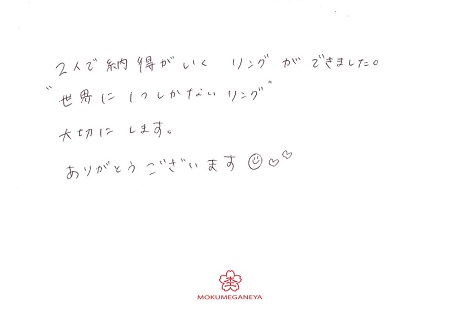 2人で納得がいく リングができました。
"世界に1つしかないリング"
大切にします。
ありがとうございます☺♡♡
MOKUMEGANEYA